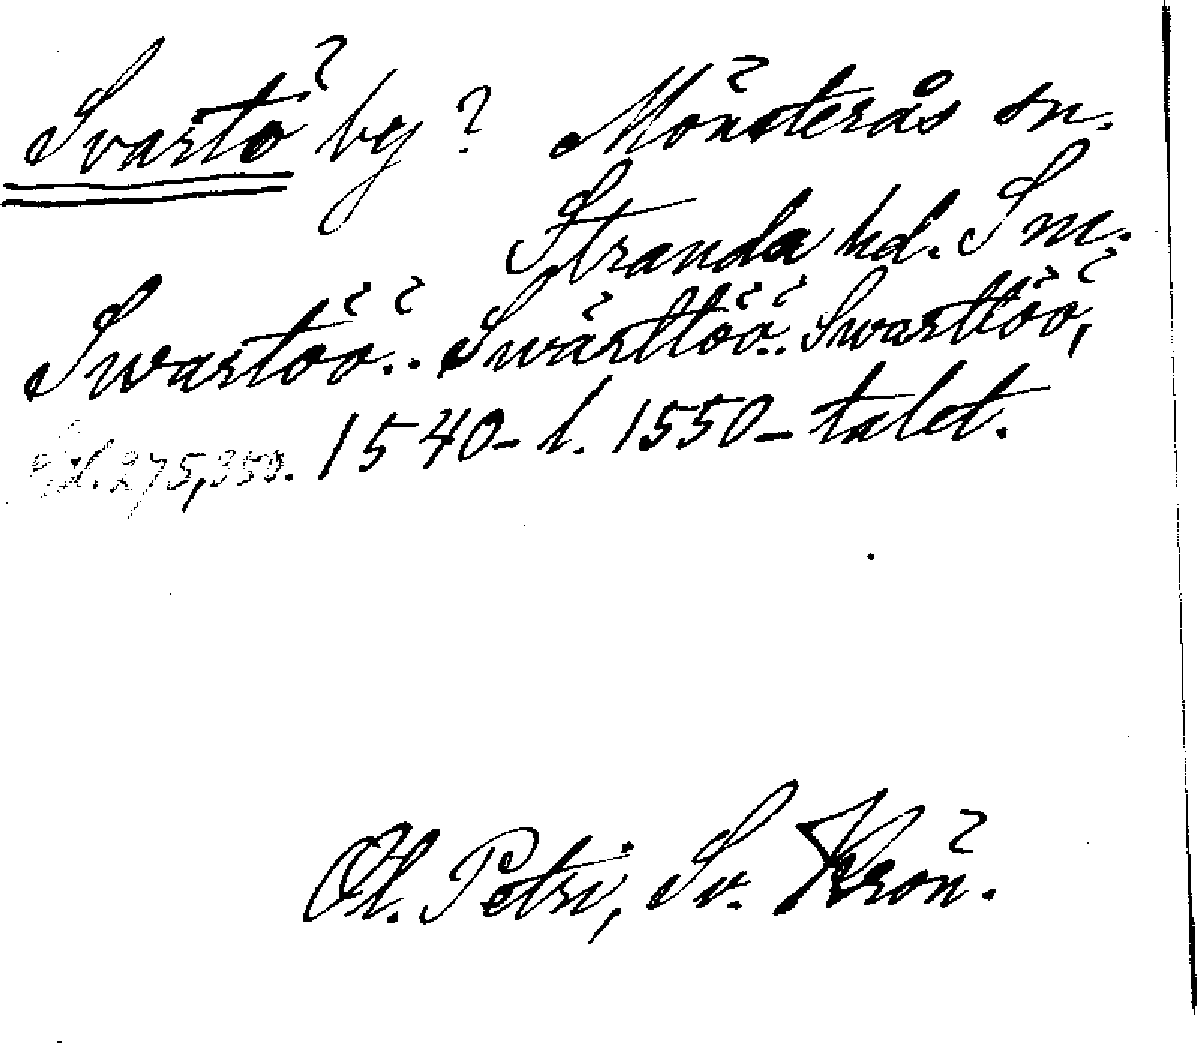 Svartö by? Mönsterås sn.
Stranda hd. Sm.
Swartöö.. Swärttöö.. Swarttöö,
275,350. 1540- l. 1550-talet.
Ol. Petri, Sv. Krön.